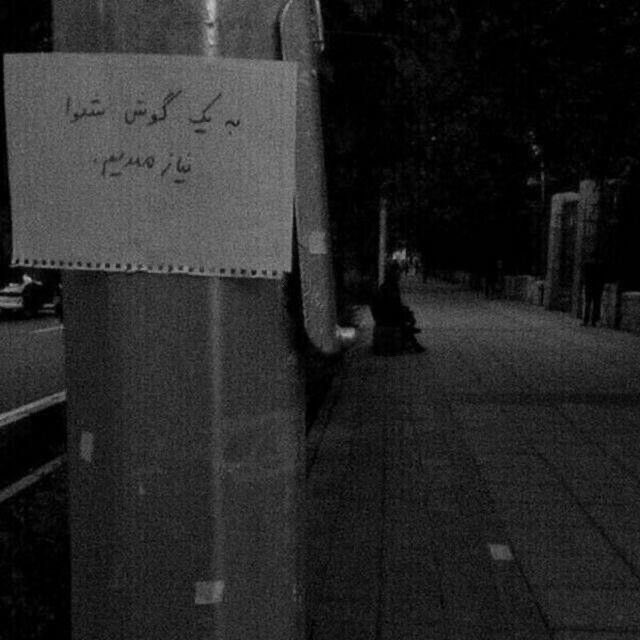 به یک گوش شنوا
نیازمندیم